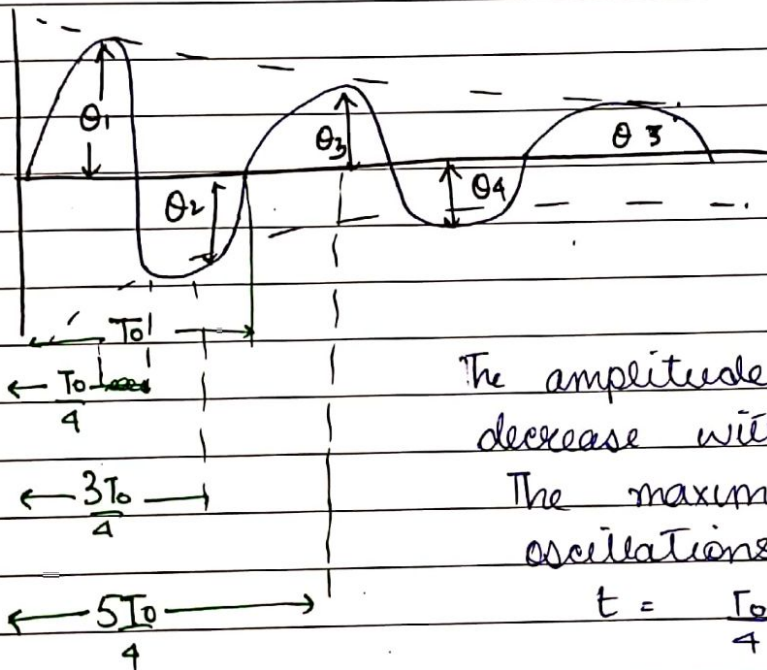 θ1
θ2
θ3
θ4
θ 5
T0
T0
4
3T0
4
5T0
4
The amplitude
decrease wit
The maxim
oscillations
t = T0
4